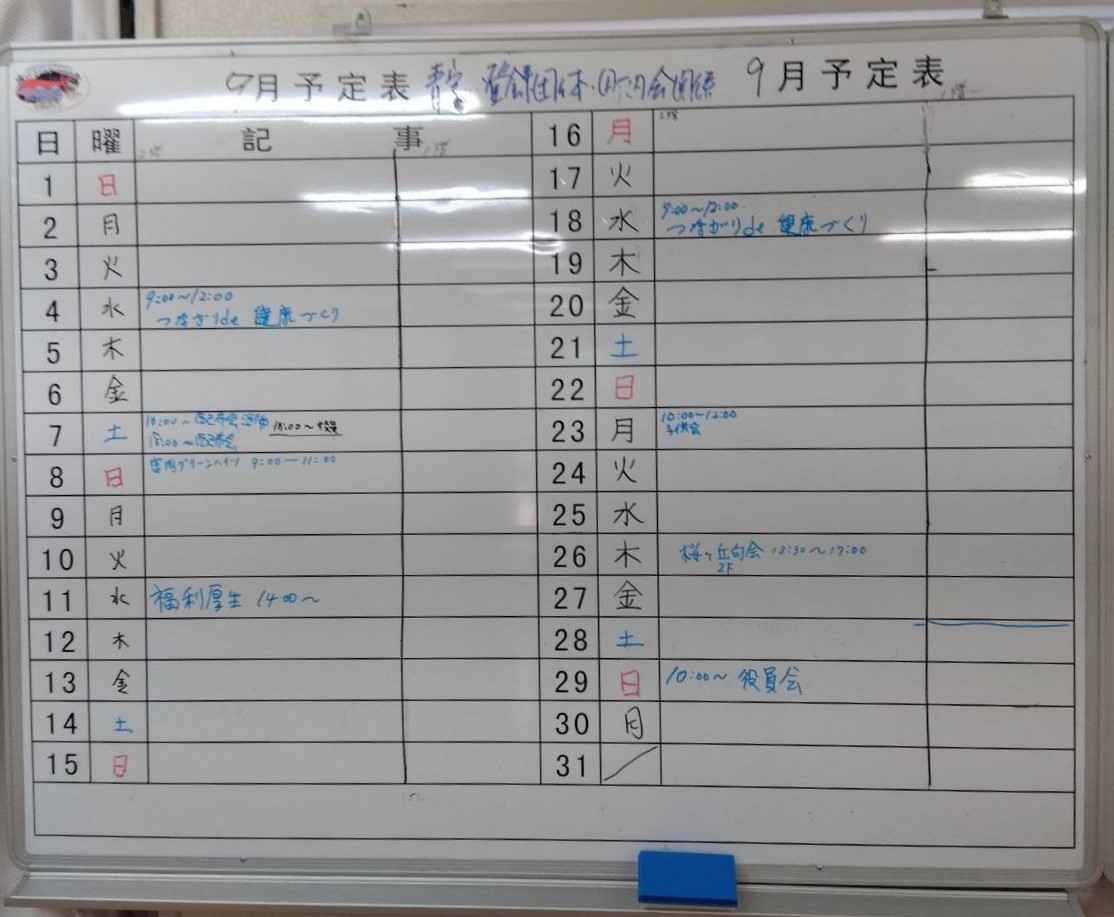 9月予定表 青字 登録団体・町内会関係 9月予定表
日 曜 記事
2階 1階
1 日
2 月
3 火
4 水 9:00～12:00
つながりde 健康づくり
5 木
6 金
7 土 10:00～ 18:00～
15:00～
8 日 宮内グリーンハイツ 9:00～11:00
9 月
10 火
11 水 福利厚生 14:00～
12 木
13 金
14 土
15 日
2階 1階
16 月
17 火
18 水 9:00～12:00
つながりde 健康づくり
19 木
20 金
21 土
22 日
23 月 10:00～12:00
子供会
24 火
25 水
26 木 桜ヶ丘句会 13:30～17:00
2F
27 金
28 土
29 日 10:00～ 役員会
30 月
31